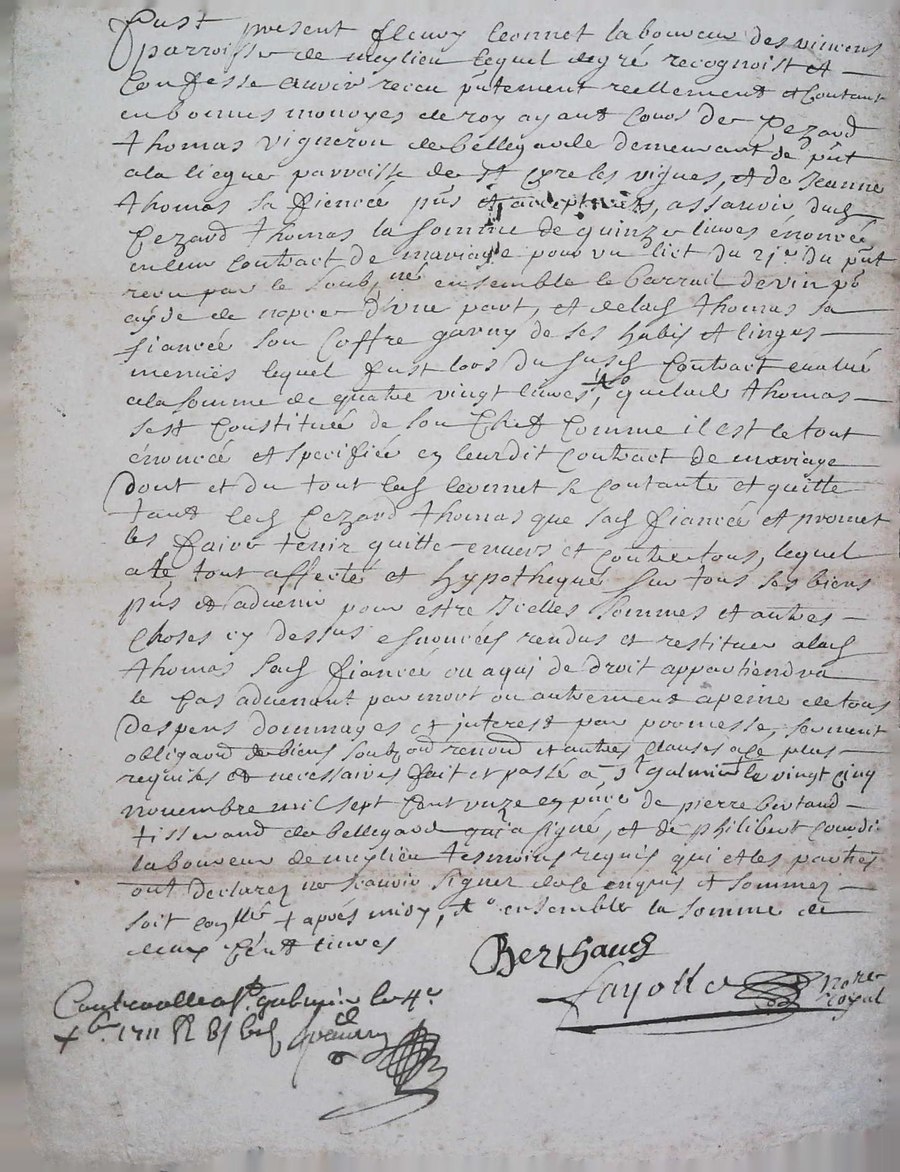 Fust present fleury leonnet laboureur des vincens
parroisse de meylieu lequel de gré recognoist et
Confesse avoir receu pntement reellement et contant
en bonnes monoyes de roy ayant cours de Cezard
thomas vigneron de bellegarde demeurant de pnt
a la liegue parroisse de st Cyre les vignes, et de Jeanne
thomas sa fiancée pns et acceptants, assavoir dud
Cezard thomas la somme de quinze livres énoncée
en leur contract de mariage pour un lict du 21e du pnt
receu par le soubne ensemble le barrail de vin po
ayde de nopce d'une part, et de lad thomas sa
fiancée son Coffre garny de ses habis et linges
menües lequel fust lors du susd Contract evalué
a la somme de quatre vingt livres, que lad thomas
s'est Constituée de son Chef Comme il est le tout
énoncé et specifié en leurdit Contract de mariage
Dont et du tout led leonnet se contante et quitte
tant led Cezard thomas que sad fiancée et promet
les faire tenir quitte envers et contre tous, lequel
a le tout affecté et hypothequé sur tous ses biens
pns et advenir pour estre Icelles sommes et autres
Choses cy dessus esnoncées rendus et restituer a lad
thomas sad fiancée ou a qui de droit appartiendra
le Cas advenant par mort ou autrement a peine de tous
despens dommages et interest par promesse, serment
obligaon de biens soubz on renond et autres clauses a ce plus
requises et necessaires fait et passé a st galmier le vingt cinq
novembre mil sept Cent unze en pnce de pierre bertaud
tisserand de bellegarde qui a signé, et de philibert
laboureur de meylieu tesmoins requis qui et les parties
ont declarez ne scavoir signer de ce enquis et sommez
soit conllé + aprés midy, ensemble la somme de
deux Cent livres
Berthaud
fayolle Notre
royal
Controllé a st galmier le 4e
xbre 1711